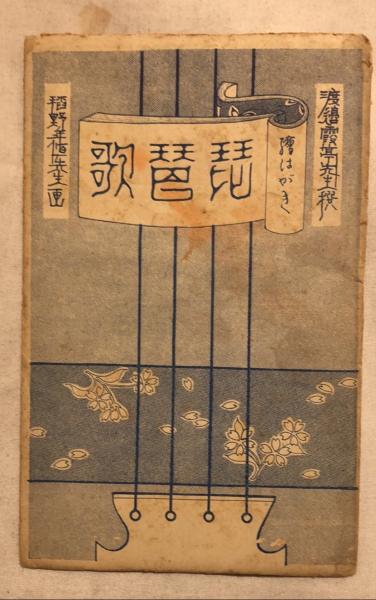 渡邊霞亭先生撰
繪はがき
琵琶歌
稻野年恒先生画